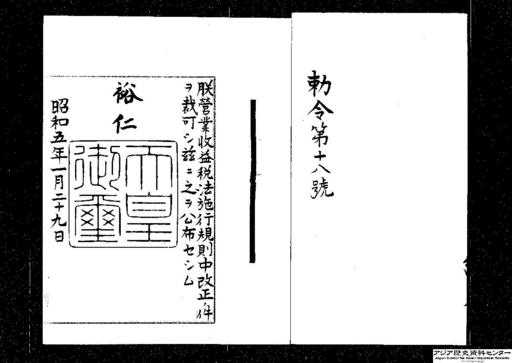 勅令第十八號
朕營業收益税法施行規則中改正ノ件
ヲ裁可シ茲ニ之ヲ公布セシム
裕仁
天皇
御璽
昭和五年一月二十九日
アジア歴史資料センター
Japan Center for Asian Historical Records